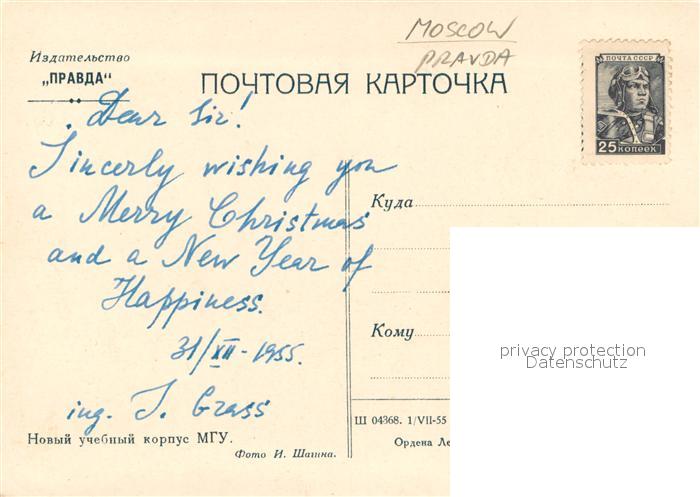 MOSCOW
PRAVDA
Издательство
„ПРАВДА“
ПОЧТОВАЯ КАРТОЧКА
ПОЧТА СССР
25 копеек
Dear Sir!
Sincerly wishing you
a Merry Christmas
and a New Year of
Happiness.
31/XII-1955.
ing. J. Grass
Куда
Кому
privacy protection
Datenschutz
Ш 04368. 1/VII-55
Ордена Ле
Новый учебный корпус МГУ.
Фото И. Шагина.